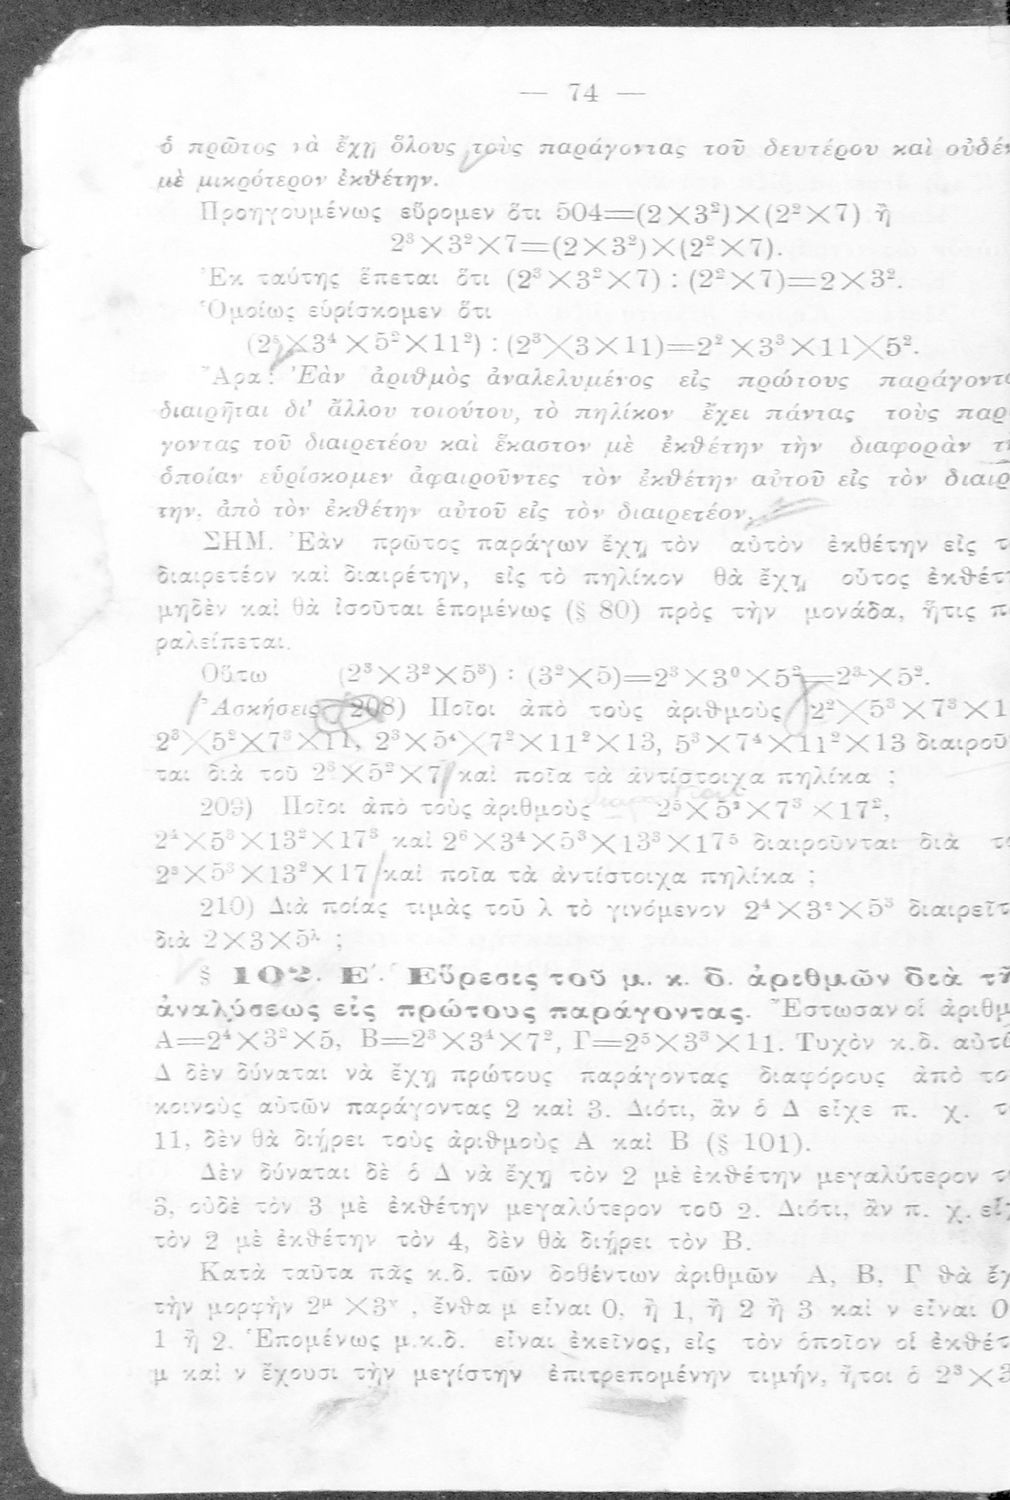 — 74 —
ὁ πρῶτος νὰ ἔχῃ ὅλους τοὺς παράγοντας τοῦ δευτέρου καὶ οὐδέν
μὲ μικρότερον ἐκθέτην.
Προηγουμένως εὕρομεν ὅτι 504=(2×3²)×(2²×7) ἢ
2³×3²×7=(2×3²)×(2²×7).
Ἐκ ταύτης ἕπεται ὅτι (2³×3²×7) : (2²×7)=2×3².
Ὁμοίως εὑρίσκομεν ὅτι
(2⁵×3⁴×5²×11²) : (2³×3×11)=2²×3³×11×5².
Ἄρα: Ἐὰν ἀριθμὸς ἀναλελυμένος εἰς πρώτους παράγοντα
διαιρῆται δι' ἄλλου τοιούτου, τὸ πηλίκον ἔχει πάντας τοὺς παρ
γοντας τοῦ διαιρετέου καὶ ἕκαστον μὲ ἐκθέτην τὴν διαφορὰν τ
ὁποίαν εὑρίσκομεν ἀφαιροῦντες τὸν ἐκθέτην αὐτοῦ εἰς τὸν διαιρ
την, ἀπὸ τὸν ἐκθέτην αὐτοῦ εἰς τὸν διαιρετέον.
ΣΗΜ. Ἐὰν πρῶτος παράγων ἔχῃ τὸν αὐτὸν ἐκθέτην εἰς τ
διαιρετέον καὶ διαιρέτην, εἰς τὸ πηλίκον θὰ ἔχῃ οὗτος ἐκθέτ
μηδὲν καὶ θὰ ἰσοῦται ἑπομένως (§ 80) πρὸς τὴν μονάδα, ἥτις π
ραλείπεται.
Οὕτω (2³×3²×5³) : (3²×5)=2³×3⁰×5²=2³×5².
Ἀσκήσεις 208) Ποῖοι ἀπὸ τοὺς ἀριθμοὺς 2²×5³×7³×1
2³×5²×7³×11, 2³×5⁴×7²×11²×13, 5³×7⁴×11²×13 διαιροῦ
ται διὰ τοῦ 2³×5²×7 καὶ ποῖα τὰ ἀντίστοιχα πηλίκα ;
209) Ποῖοι ἀπὸ τοὺς ἀριθμοὺς 2⁵×5³×7³×17²,
2⁴×5³×13²×17³ καὶ 2⁶×3⁴×5³×13³×17⁵ διαιροῦνται διὰ τ
2³×5³×13²×17 καὶ ποῖα τὰ ἀντίστοιχα πηλίκα ;
210) Διὰ ποίας τιμὰς τοῦ λ τὸ γινόμενον 2⁴×3²×5³ διαιρεῖτ
διὰ 2×3×5λ ;
§ 102. Ε΄. Εὕρεσις τοῦ μ. κ. δ. ἀριθμῶν διὰ τῆ
ἀναλύσεως εἰς πρώτους παράγοντας. Ἔστωσαν οἱ ἀριθμ
Α=2⁴×3²×5, Β=2³×3⁴×7², Γ=2⁵×3³×11. Τυχὸν κ.δ. αὐτῶ
Δ δὲν δύναται νὰ ἔχῃ πρώτους παράγοντας διαφόρους ἀπὸ το
κοινοὺς αὐτῶν παράγοντας 2 καὶ 3. Διότι, ἂν ὁ Δ εἶχε π. χ. τ
11, δὲν θὰ διῄρει τοὺς ἀριθμοὺς Α καὶ Β (§ 101).
Δὲν δύναται δὲ ὁ Δ νὰ ἔχῃ τὸν 2 μὲ ἐκθέτην μεγαλύτερον τ
3, οὐδὲ τὸν 3 μὲ ἐκθέτην μεγαλύτερον τοῦ 2. Διότι, ἂν π. χ. εἶχ
τὸν 2 μὲ ἐκθέτην τὸν 4, δὲν θὰ διῄρει τὸν Β.
Κατὰ ταῦτα πᾶς κ.δ. τῶν δοθέντων ἀριθμῶν Α, Β, Γ θὰ ἔχ
τὴν μορφὴν 2μ ×3ν , ἔνθα μ εἶναι 0, ἢ 1, ἢ 2 ἢ 3 καὶ ν εἶναι 0
1 ἢ 2. Ἑπομένως μ.κ.δ. εἶναι ἐκεῖνος, εἰς τὸν ὁποῖον οἱ ἐκθέτ
μ καὶ ν ἔχουσι τὴν μεγίστην ἐπιτρεπομένην τιμήν, ἤτοι ὁ 2³×3